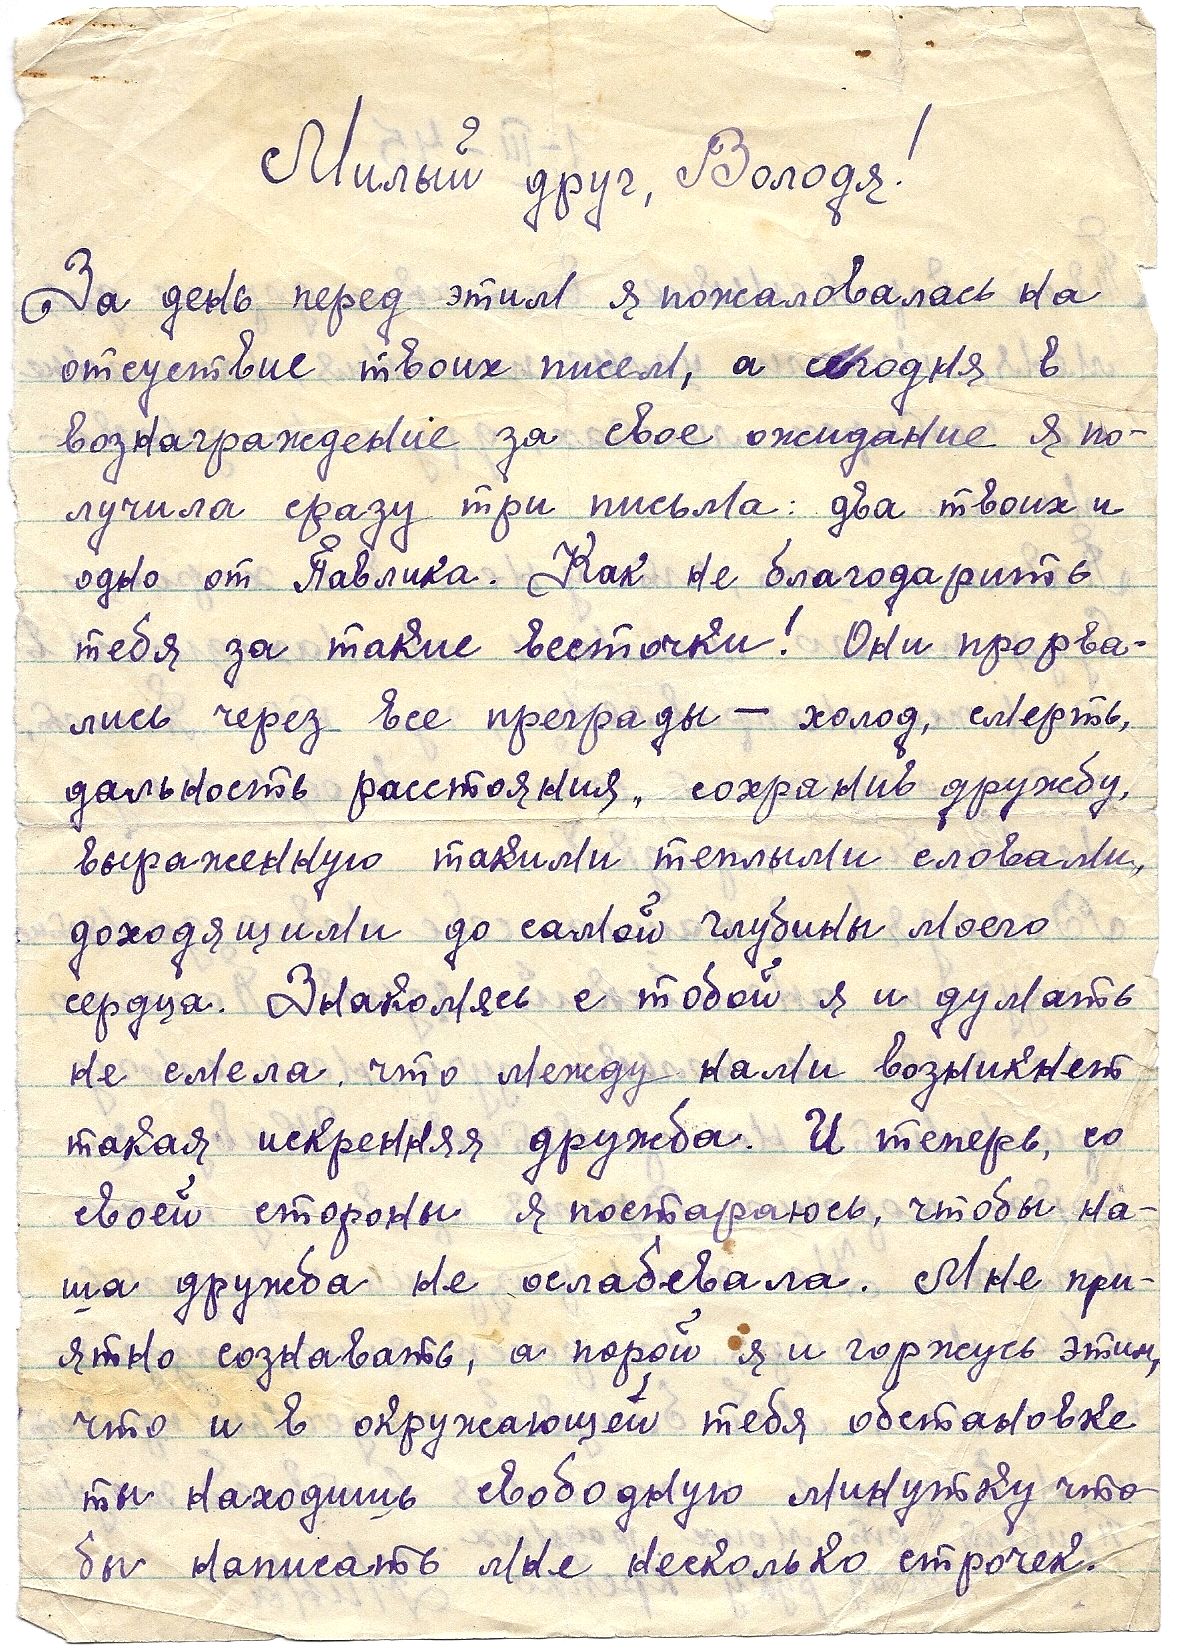 Милый друг, Володя!
За день перед этим я пожаловалась на
отсуствие твоих писем, а сегодня в
вознаграждение за свое ожидание я по-
лучила сразу три письма: два твоих и
одно от Павлика. Как не благодарить
тебя за такие весточки! Они прорва-
лись через все преграды — холод, смерть,
дальность расстояния, сохранив дружбу,
выраженную такими теплыми словами,
доходящими до самой глубины моего
сердца. Знакомясь с тобой я и думать
не смела, что между нами возникнет
такая искренняя дружба. И теперь, со
своей стороны я постараюсь, чтобы на-
ша дружба не ослабевала. Мне при-
ятно сознавать, а порой я и горжусь этим,
что и в окружающей тебя обстановке
ты находишь свободную минутку что
бы написать мне несколько строчек.